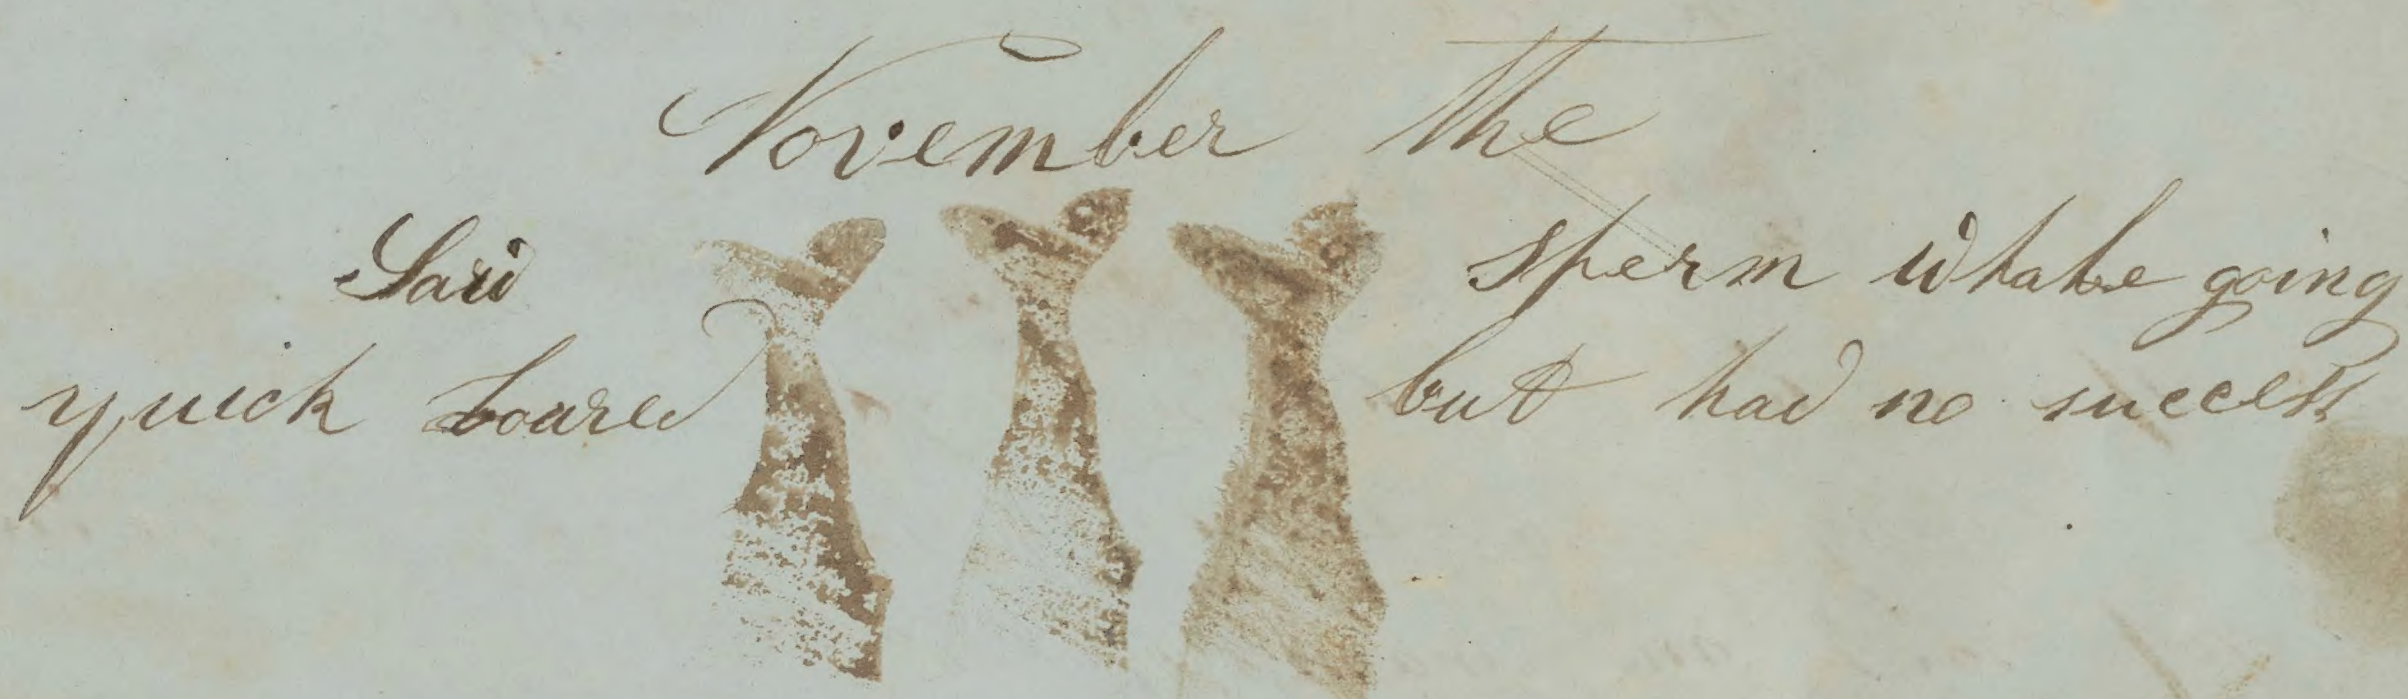 November the
Saw sperm whale going
quick Loared but had no success